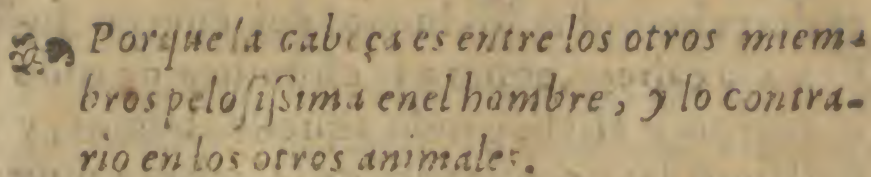 Porque la cabeça es entre los otros miem-
bros peloſiſsima enel hombre, y lo contra-
rio en los otros animales.